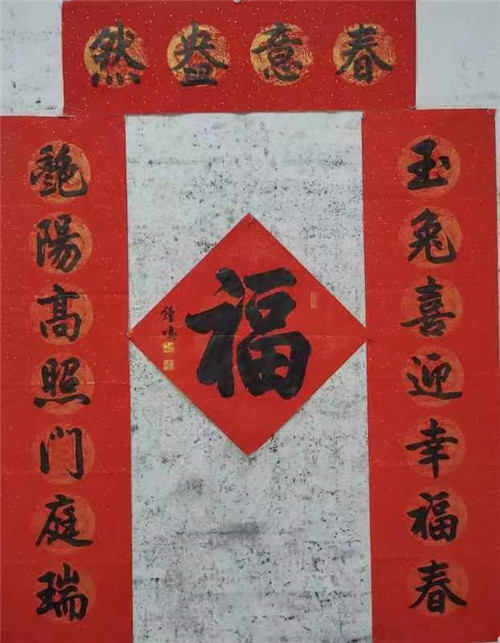 春意盎然
玉兔喜迎幸福春
艷陽高照门庭瑞
福